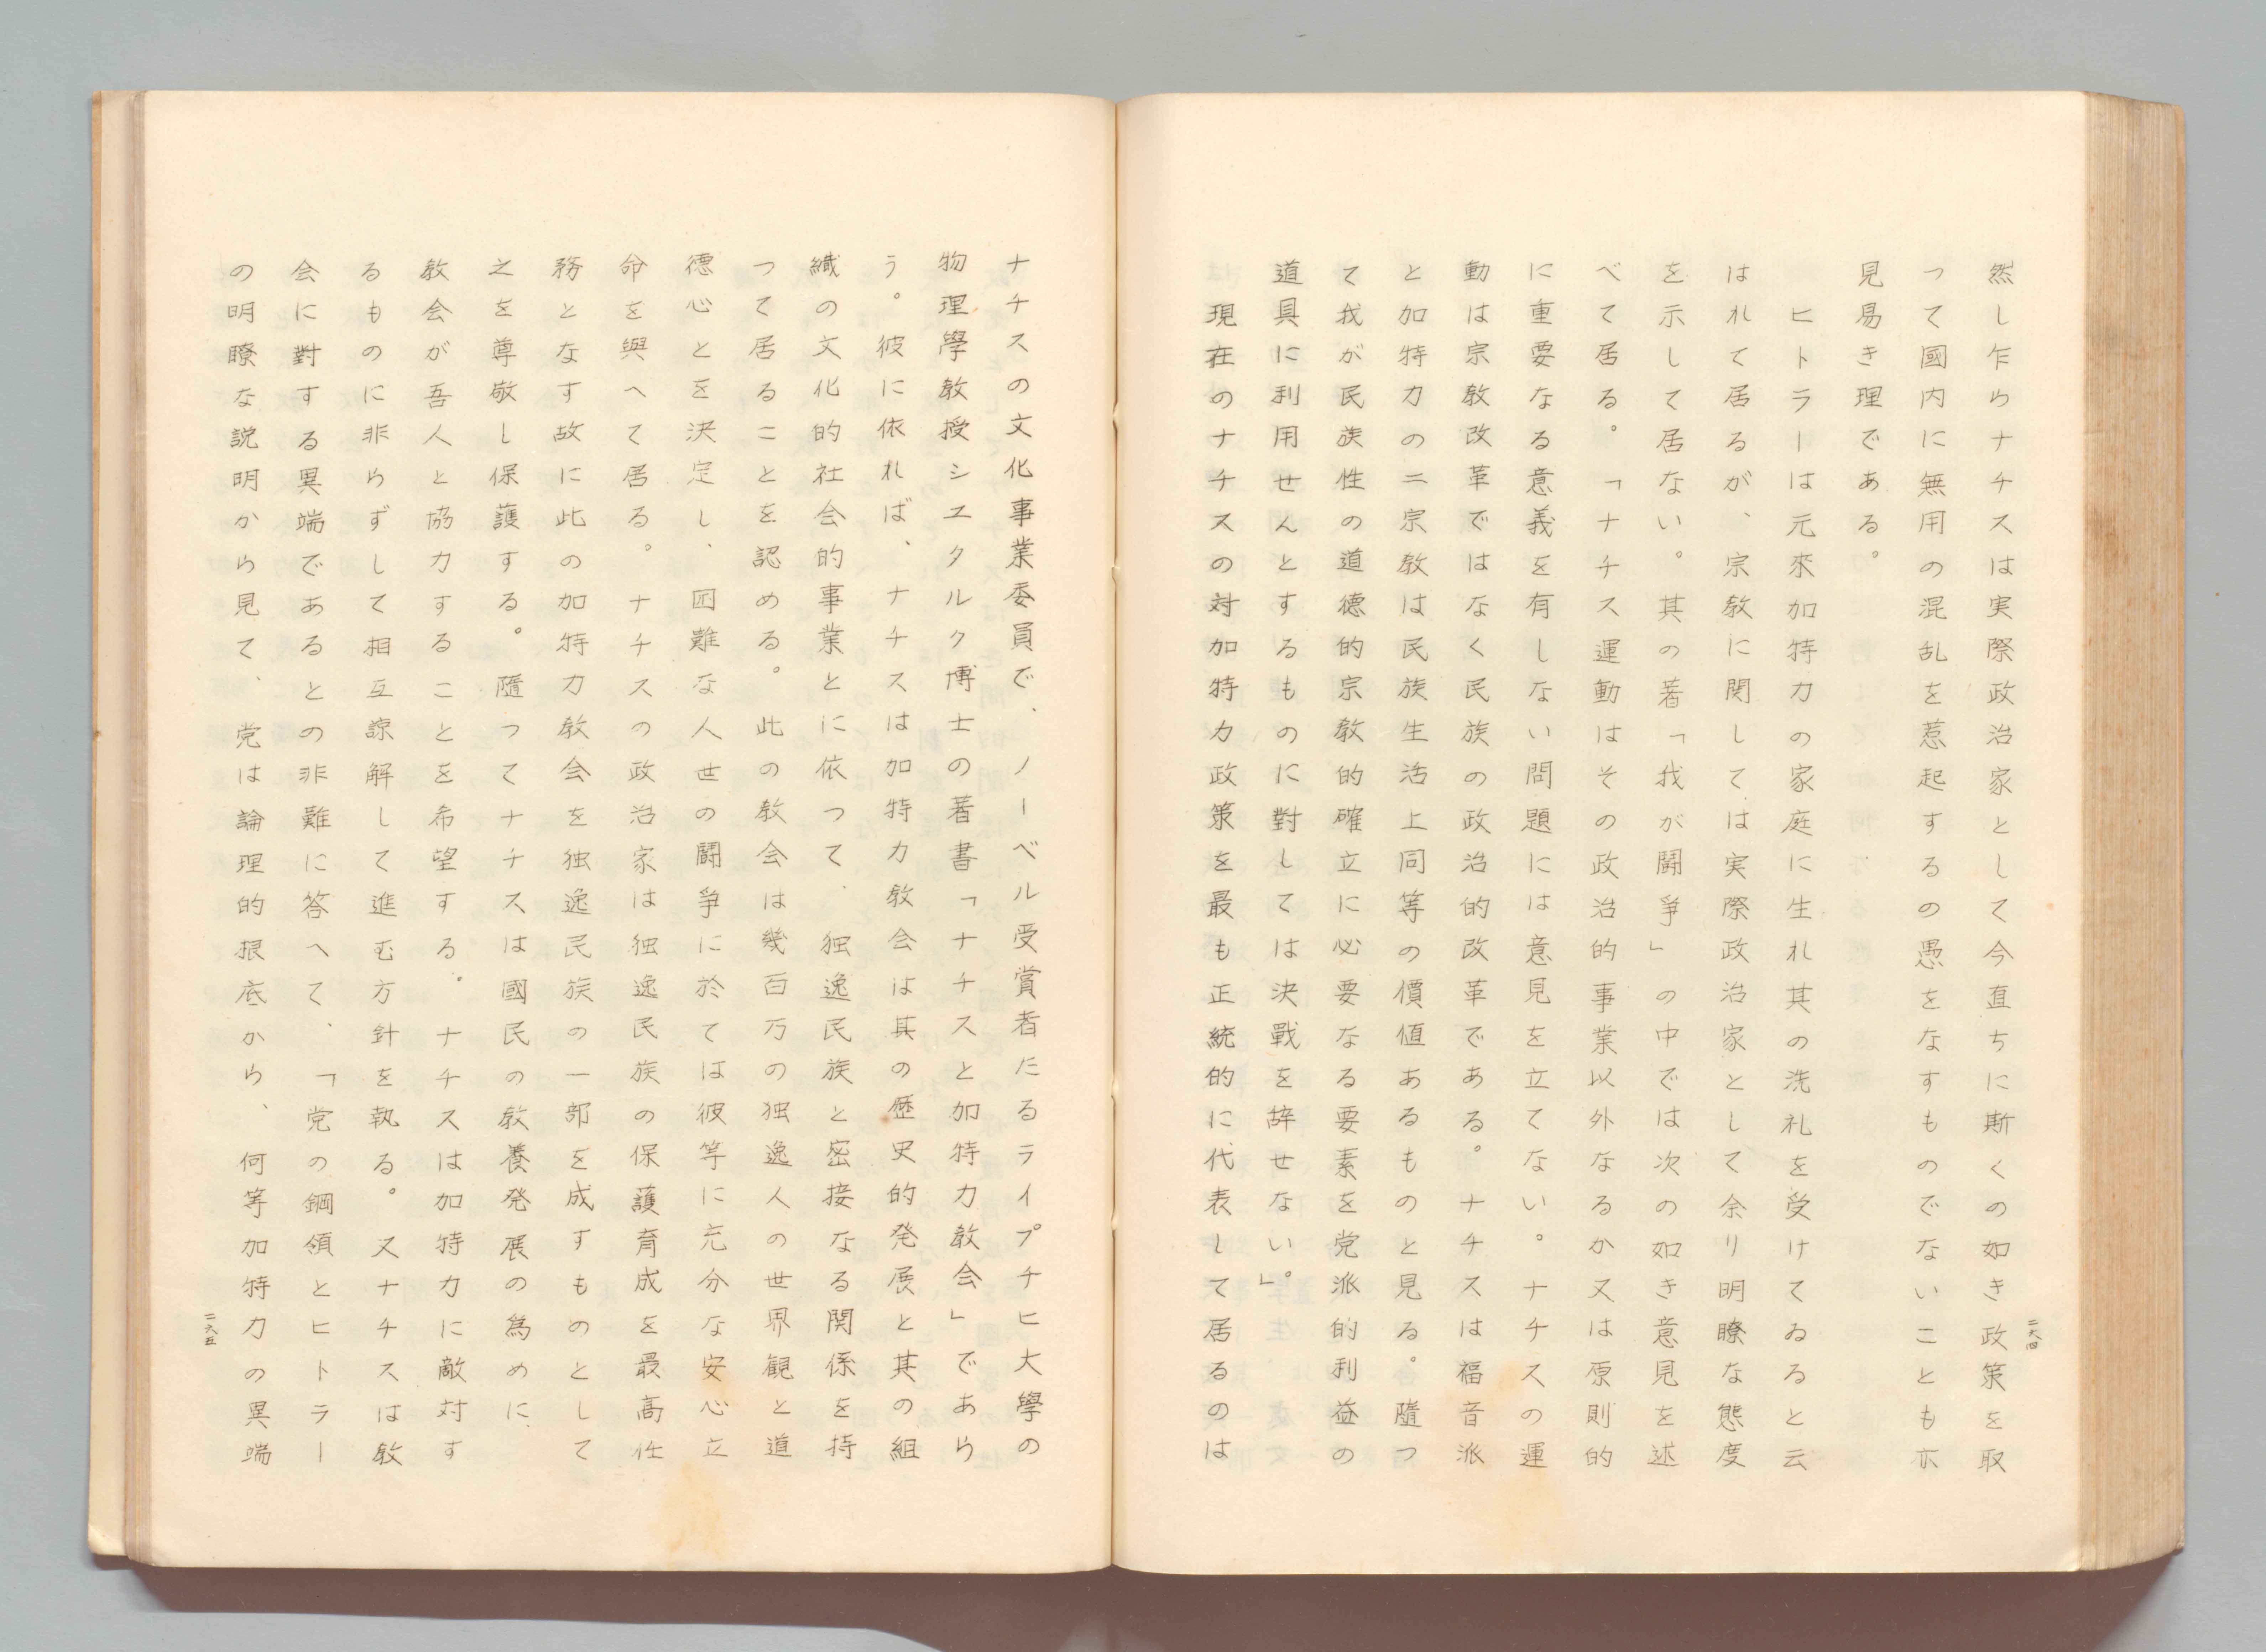 然し乍らナチスは実際政治家として今直ちに斯くの如き政策を取
つて國内に無用の混乱を惹起するの愚をなすものでないことも亦
見易き理である。
ヒトラーは元來加特力の家庭に生れ其の洗礼を受けてゐると云
はれて居るが、宗教に関しては実際政治家として余り明瞭な態度
を示して居ない。其の著「我が闘爭」の中では次の如き意見を述
べて居る。「ナチス運動はその政治的事業以外なるか又は原則的
に重要なる意義を有しない問題には意見を立てない。ナチスの運
動は宗教改革ではなく民族の政治的改革である。ナチスは福音派
と加特力の二宗教は民族生活上同等の價値あるものと見る。隨つ
て我が民族性の道德的宗教的確立に必要なる要素を党派的利益の
道具に利用せんとするものに對しては決戰を辞せない」。
現在のナチスの対加特力政策を最も正統的に代表して居るのは
二六四
ナチスの文化事業委員で、ノーベル受賞者たるライプチヒ大學の
物理學教授シユタルク博士の著書「ナチスと加特力教会」であら
う。彼に依れば、ナチスは加特力教会は其の歴史的発展と其の組
織の文化的社会的事業とに依つて、独逸民族と密接なる関係を持
つて居ることを認める。此の教会は幾百万の独逸人の世界観と道
德心とを決定し、困難な人世の闘爭に於ては彼等に充分な安心立
命を與へて居る。ナチスの政治家は独逸民族の保護育成を最高任
務となす故に此の加特力教会を独逸民族の一部を成すものとして
之を尊敬し保護する。隨つてナチスは國民の教養発展の為めに、
教会が吾人と協力することを希望する。ナチスは加特力に敵対す
るものに非らずして相互諒解して進む方針を執る。又ナチスは教
会に對する異端であるとの非難に答へて、「党の鋼領とヒトラー
の明瞭な説明から見て、党は論理的根底から、何等加特力の異端
二六五